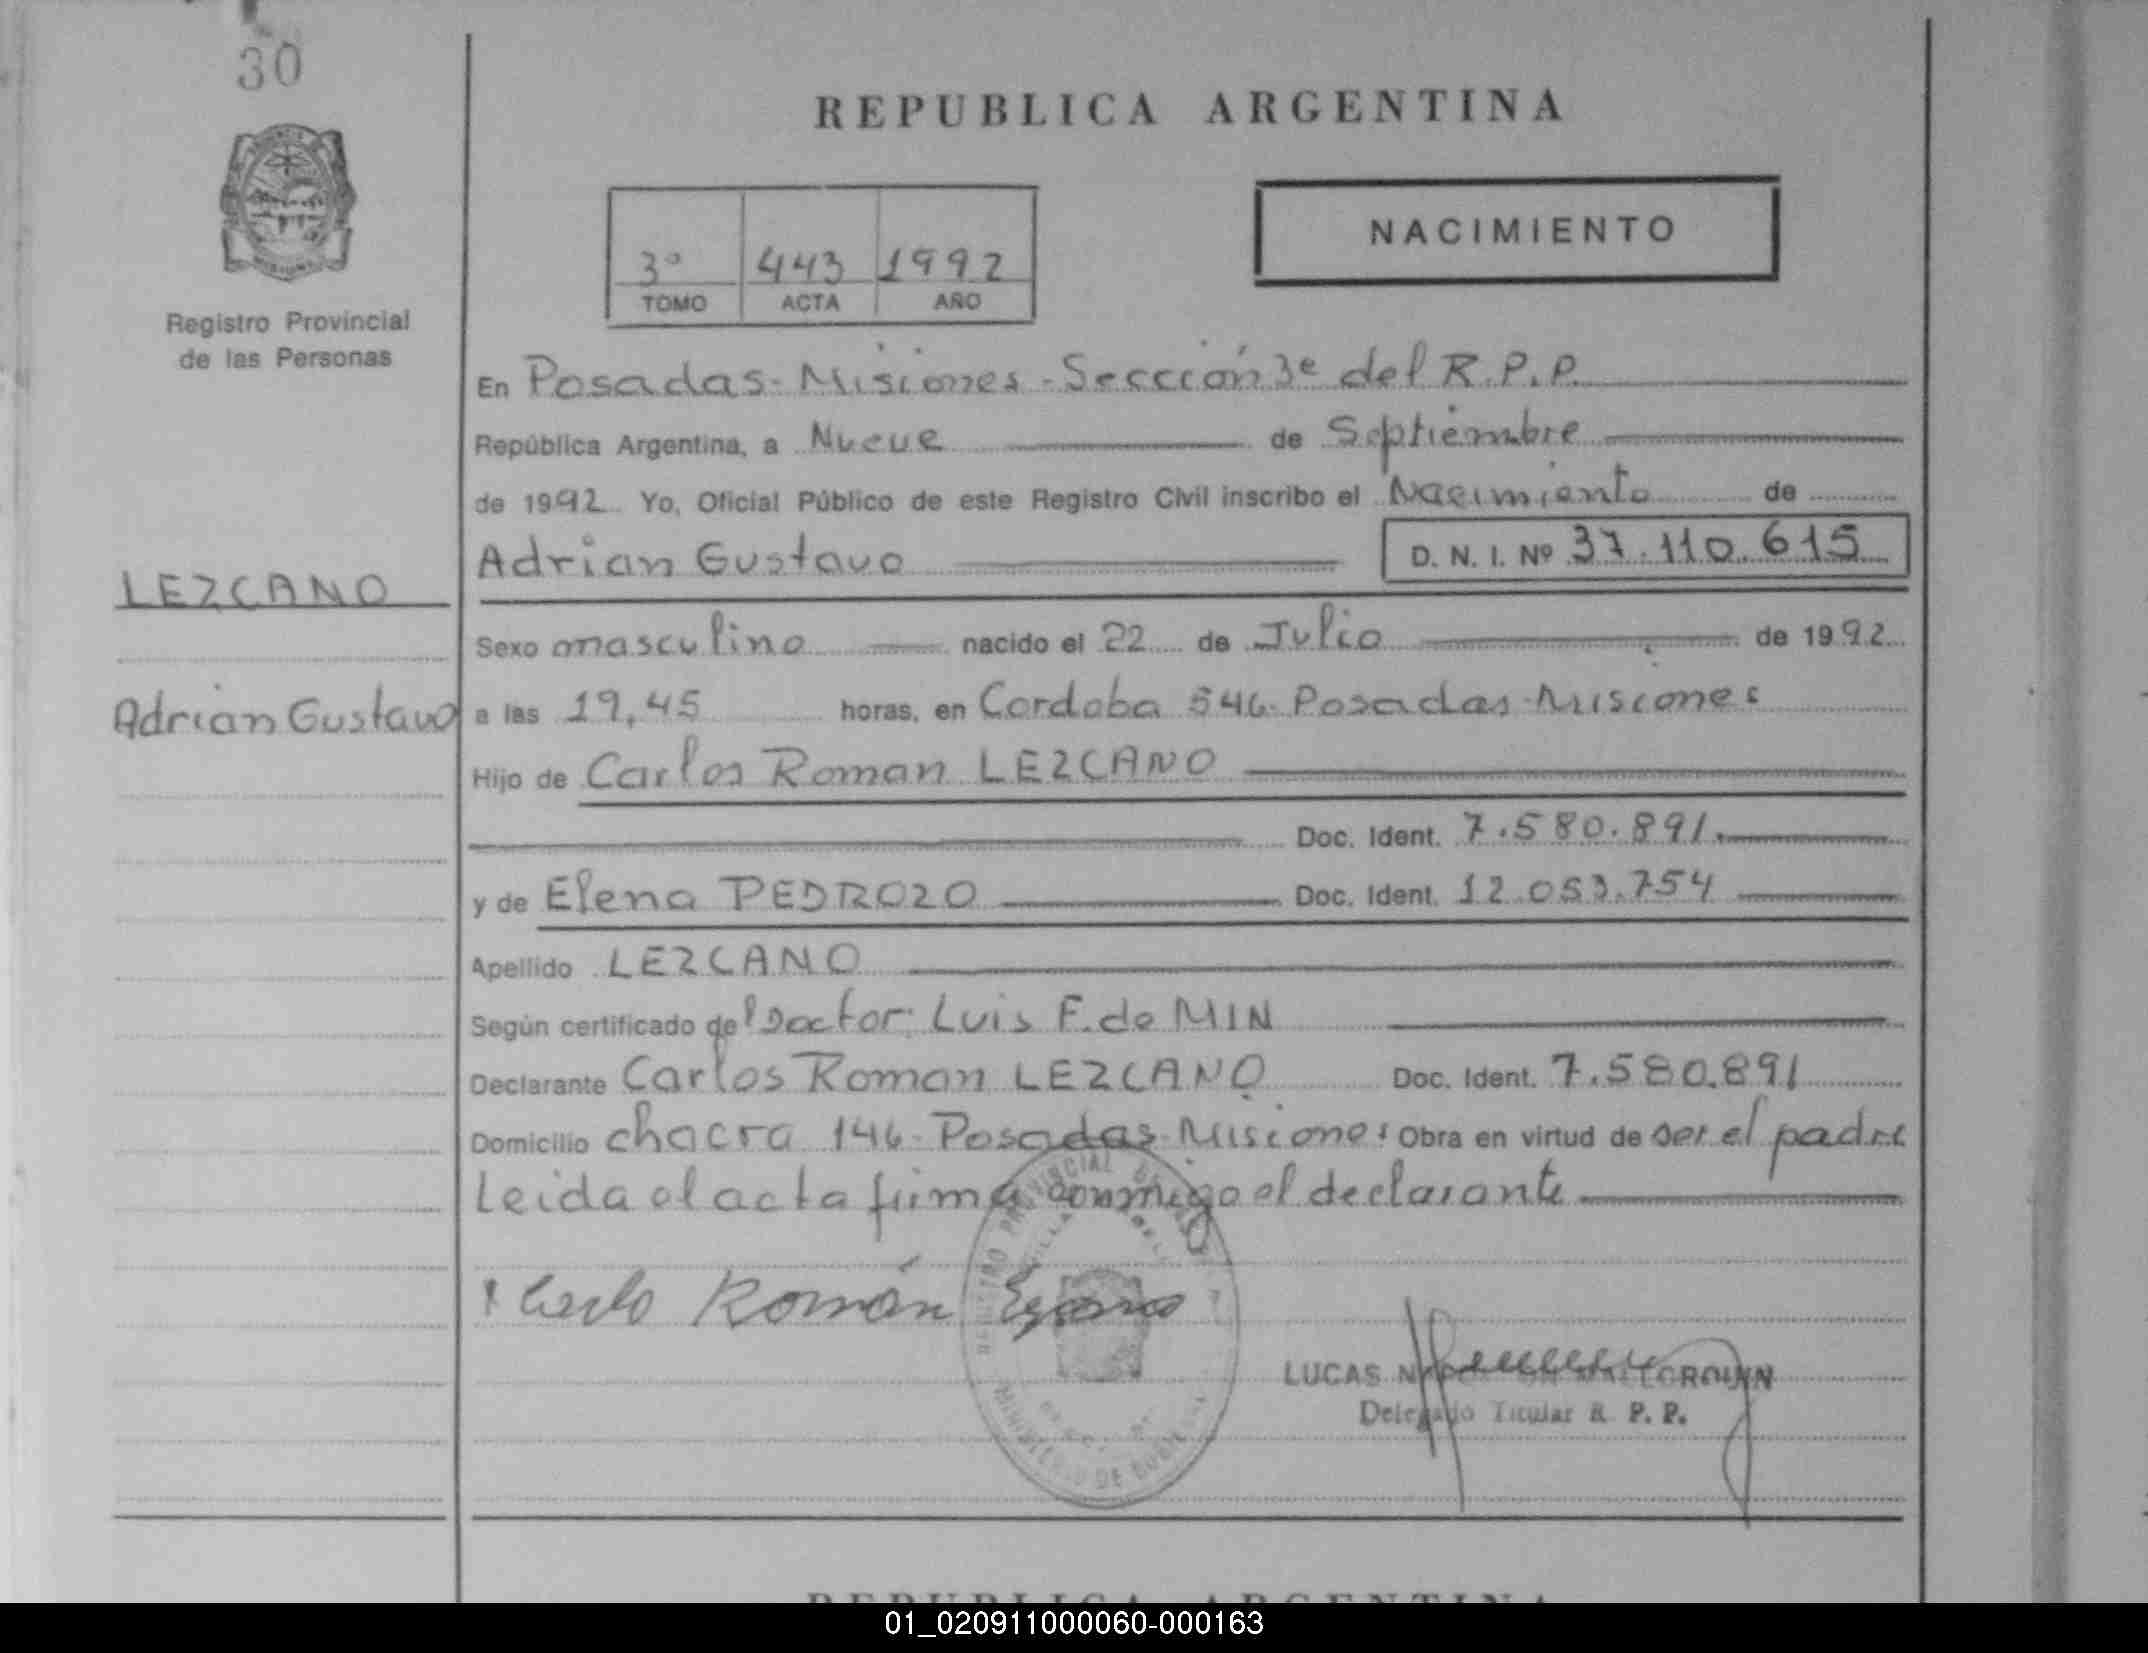 30
REPUBLICA ARGENTINA
NACIMIENTO
3º 443 1992
TOMO ACTA AÑO
Registro Provincial
de las Personas
En Posadas - Misiones - Sección 3ª del R.P.P.
República Argentina, a Nueve de Septiembre
de 1992 Yo, Oficial Público de este Registro Civil inscribo el Nacimiento de
Adrian Gustavo D. N. I. Nº 37.110.615
LEZCANO
Sexo masculino nacido el 22 de Julio de 1992
Adrian Gustavo
a las 19,45 horas, en Cordoba 546 - Posadas - Misiones
Hijo de Carlos Roman LEZCANO
Doc. Ident. 7.580.891
y de Elena PEDROZO Doc. Ident. 12.053.754
Apellido LEZCANO
Según certificado del Doctor: Luis F. de MIN
Declarante Carlos Roman LEZCANO Doc. Ident. 7.580.891
Domicilio chacra 146 - Posadas - Misiones Obra en virtud de ser el padre
Leida el acta firma conmigo el declarante
Román
REGISTRO PROVINCIAL DE LAS
MINISTERIO DE GOBIERNO
LUCAS
Delegado Titular R. P. P.
REPUBLICA ARGENTINA
01_020911000060-000163